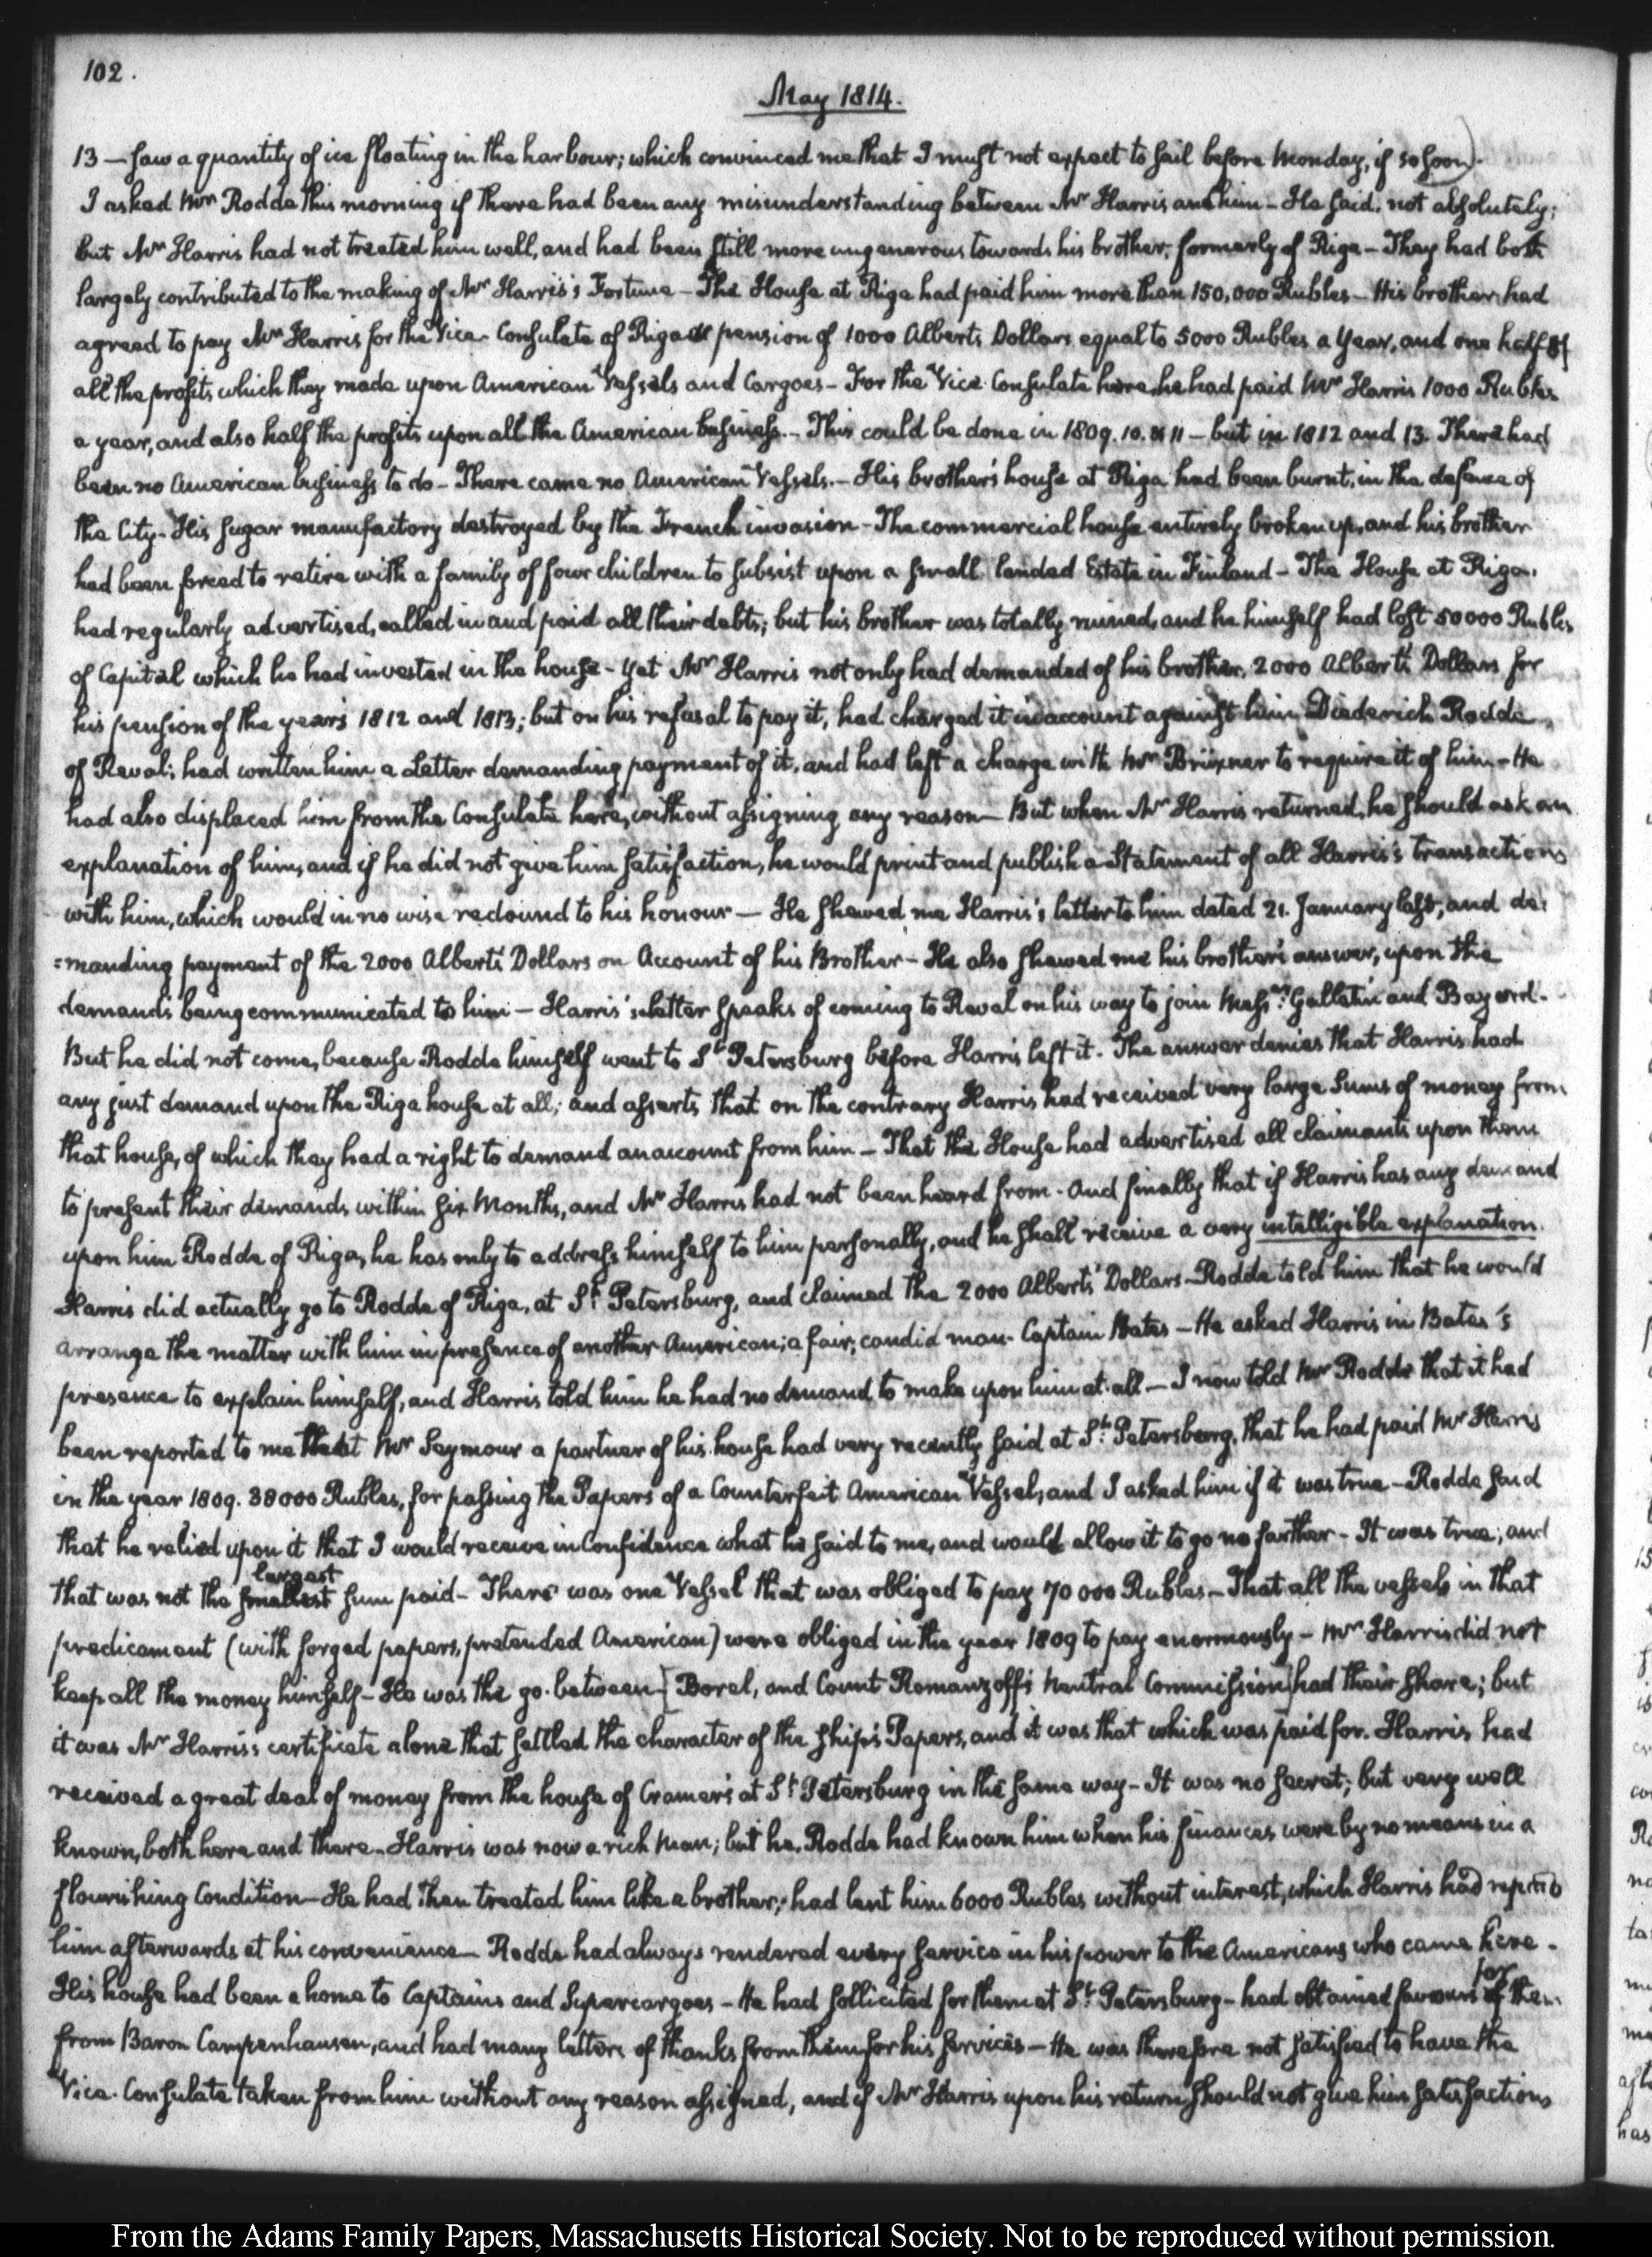 102.
May 1814.
13 — saw a quantity of ice floating in the harbour; which convinced me that I must not expect to sail before Monday, if so soon).
I asked Mr Rodde this morning if there had been any misunderstanding between Mr Harris and him – He said, not absolutely;
but Mr Harris had not treated him well, and had been still more ungenerous towards his brother, formerly of Riga – They had both
largely contributed to the making of Mr Harris's Fortune – The House at Riga had paid him more than 150,000 Rubles – His brother had
agreed to pay Mr Harris for the Vice-Consulate of Riga a pension of 1000 Alberts Dollars equal to 5000 Rubles a Year, and one half of
all the profits which they made upon American Vessels and Cargoes – For the Vice Consulate here, he had paid Mr Harris 1000 Rubles
a year, and also half the profits upon all the American business. – This could be done in 1809. 10. & 11 – but in 1812 and 13. There had
been no American business to do – There came no American Vessels. – His brother's house at Riga had been burnt, in the defence of
the City – His sugar manufactory destroyed by the French invasion – The commercial house entirely broken up, and his brother
had been forced to retire with a family of four children to subsist upon a small landed Estate in Finland – The House at Riga.
had regularly advertised, called in and paid all their debts; but his brother was totally ruined, and he himself had lost 50000 Rubles
of Capital which he had invested in the house – yet Mr Harris not only had demanded of his brother, 2000 Alberts Dollars for
his pension of the years 1812 and 1813; but on his refusal to pay it, had charged it in account against him Diederich Rodde
of Reval; had written him a Letter demanding payment of it, and had left a charge with Mr Brüxner to require it of him – He
had also displaced him from the Consulate here, without assigning any reason – But when Mr Harris returned, he should ask an
explanation of him, and if he did not give him satisfaction, he would print and publish a Statement of all Harris's transactions
with him, which would in no wise redound to his honour — He shewed me Harris's letter to him dated 21. January last, and de:
:manding payment of the 2000 Alberts Dollars on Account of his Brother – He also shewed me his brother's answer, upon the
demands being communicated to him – Harris's letter speaks of coming to Reval on his way to join Messrs. Gallatin and Bayard.
But he did not come, because Rodde himself went to St. Petersburg before Harris left it. The answer denies that Harris had
any just demand upon the Riga house at all; and asserts that on the contrary Harris had received very large sums of money from
that house, of which they had a right to demand an account from him – That the House had advertised all claimants upon them
to present their demands within six Months, and Mr Harris had not been heard from. And finally that if Harris has any demand
upon him Rodde of Riga, he has only to address himself to him personally, and he shall receive a very intelligible explanation.
Harris did actually go to Rodde of Riga, at St. Petersburg, and claimed the 2000 Alberts Dollars – Rodde told him that he would
arrange the matter with him in presence of another American; a fair, candid man. Captain Bates – He asked Harris in Bates's
presence to explain himself, and Harris told him he had no demand to make upon him at all – I now told Mr Rodde that it had
been reported to me that Mr Seymour a partner of his house had very recently said at St. Petersburg, that he had paid Mr Harris
in the year 1809. 38000 Rubles, for passing the Papers of a Counterfeit American Vessel, and I asked him if it was true – Rodde said
that he relied upon it that I would receive in Confidence what he said to me, and would allow it to go no farther – It was true; and
that was not the smallest largest sum paid – There was one Vessel that was obliged to pay 70 000 Rubles – That all the vessels in that
predicament (with forged papers, pretended American) were obliged in the year 1809 to pay enormously – Mr Harris did not
keep all the money himself – He was the go-between [Borel, and Count Romanzoff's Neutral Commission] had their share; but
it was Mr Harris's certificate alone that settled the character of the ship's Papers, and it was that which was paid for. Harris had
received a great deal of money from the house of Cramers at St Petersburg in the same way – It was no secret; but very well
known, both here and there – Harris was now a rich man; but he, Rodde had known him when his finances were by no means in a
flourishing Condition – He had then treated him like a brother; had lent him 6000 Rubles without interest, which Harris had repaid
him afterwards at his convenience – Rodde had always rendered every service in his power to the Americans who came here.
His house had been a home to Captains and Supercargoes – He had sollicited for them at St. Petersburg – had obtained favours of for them
from Baron Campenhausen, and had many letters of thanks from them for his services – He was therefore not satisfied to have the
Vice-Consulate taken from him without any reason assigned, and if Mr Harris upon his return should not give him satisfactions
From the Adams Family Papers, Massachusetts Historical Society. Not to be reproduced without permission.